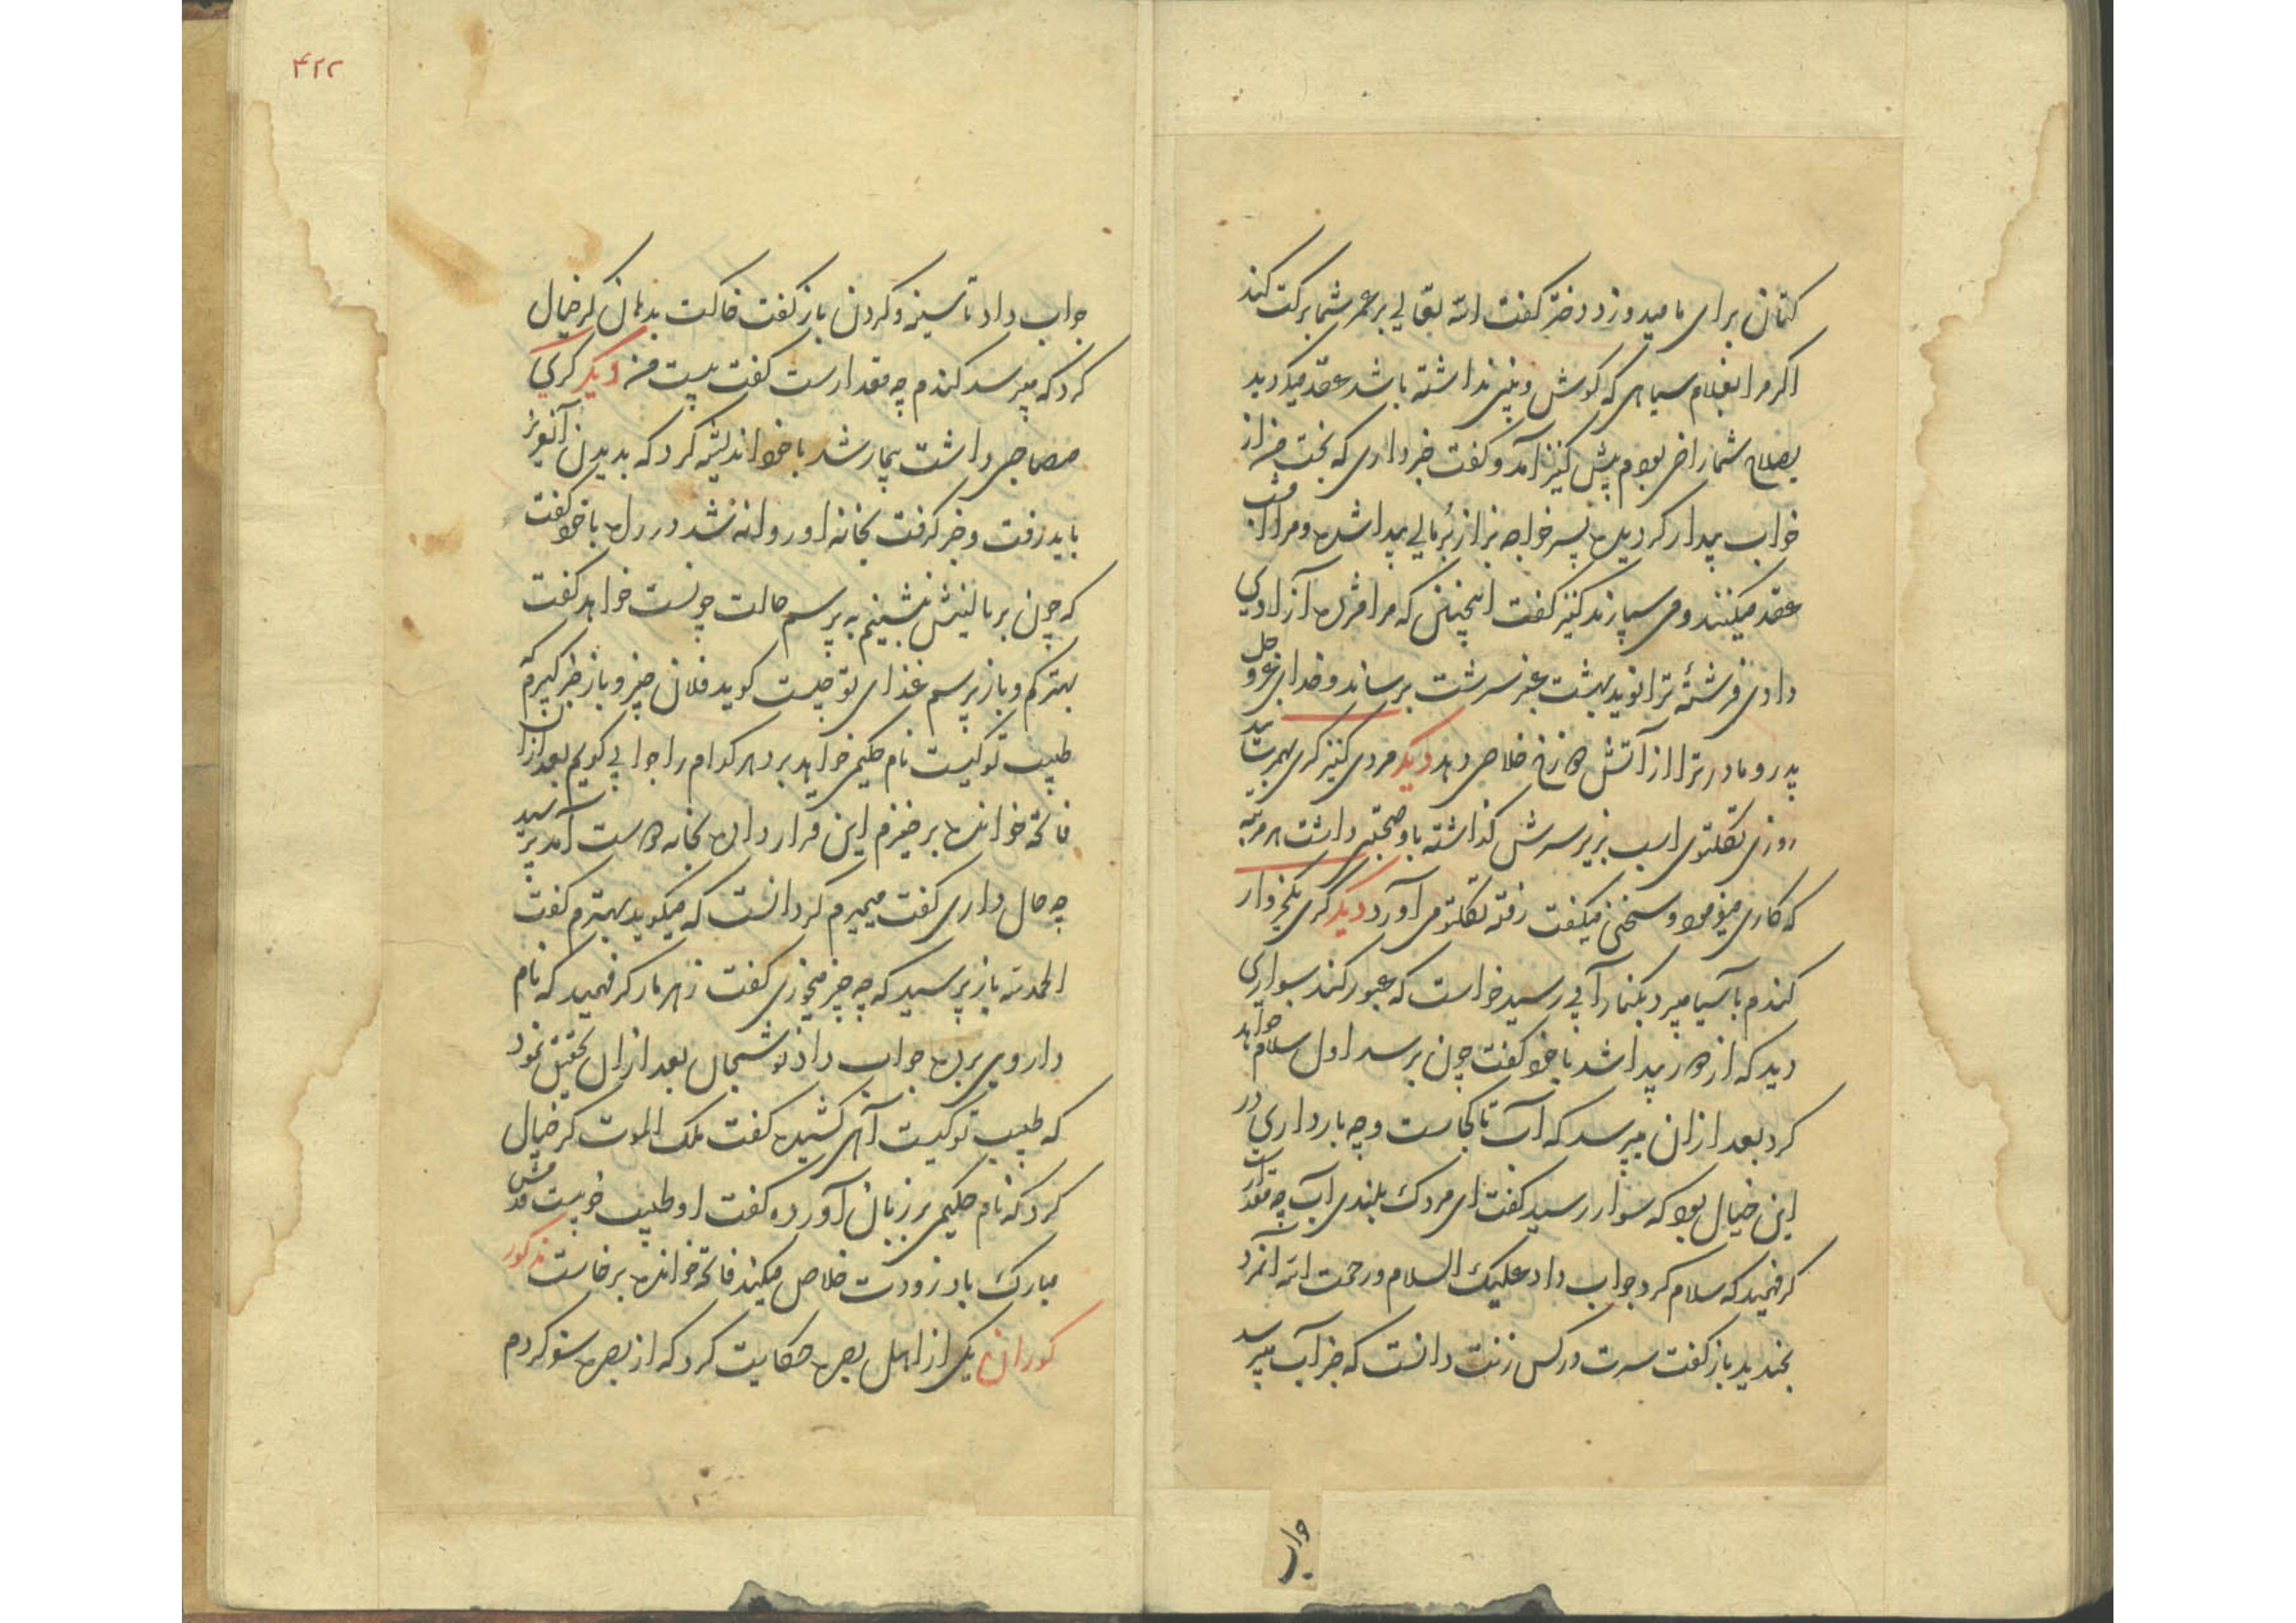 کتان برای ما میدوزد دختر گفت الله تعالی بر عمر شما برکت کند
اگر مرا بغلام سیاهی که گوش و بینی نداشته باشد عقد میکردید
بصلاح شما راضی بودم پیش کنیز آمد و گفت خبر داری که بخت من از
خواب بیدار گردیده پسر خواجه بزاز برمالی پیدا شده و مرا
عقد میکنند و می سپارند کنیز گفت اینچنین که مرا مژده آزادی
دادی فرشتهٔ ترا نوید بهشت عنبر سرشت برساند و خدای عز و جل
پدر و مادر ترا از آتش دوزخ خلاصی دهد دیگر مردی کنیز کری بهمرسانید
روزی تکلتوی اسب بزیر سرش گذاشته باو صحبتی داشت هر مرتبه
که کاری میفرمود و سخنی میگفت رفته تکلتو می آورد دیگر کری یکخروار
گندم بآسیا میبرد بکنار آبی رسید خواست که عبور کند سواری
دید که از دور پیدا شد با خود گفت چون برسد اول سلام خواهد
کرد بعد از آن میپرسد که آب تا کجاست و چه بار داری در
این خیال بود که سوار رسید گفت ای مردک بلندی آب چه مقدار است
کر فهمید که سلام کرد جواب داد علیک السلام و رحمت الله آنمرد
بخندید باز گفت سرت در کس زنت دانست که خبر آب میپرسد
جواب
۴۲۲
جواب داد تا سینه و گردن باز گفت خاکت بدهان کر خیال
کرد که میپرسد گندم چه مقدارست گفت بیست من دیگر کری
مصاحبی داشت بیمار شد با خود اندیشه کرد که بدیدن آنعزیز
باید رفت و خبر گرفت بخانه او روانه شد در راه با خود گفت
که چون بر بالینش بنشینم به پرسم حالت چونست خواهد گفت
بهترکم و باز پرسم غذای تو چیست گوید فلان چیز و باز خبر گیرم که
طبیب تو کیست نام حکیمی خواهد برد هر کدام را جوابی گویم بعد از آن
فاتحه خوانده برخیزم این قرار داده بخانه دوست آمد پرسید
چه حال داری گفت میمیرم کر دانست که میگوید بهترم گفت
الحمد لله باز پرسید که چه چیز میخوری گفت زهر مار کر فهمید که نام
داروی برده جواب داد نوشجان بعد از آن تحقیق نمود
که طبیب تو کیست آهی کشیده گفت ملک الموت کر خیال
کرد که نام حکیمی بر زبان آورده گفت او طبیب خوبیست قدمش
مبارک باد زودت خلاص میکند فاتحه خوانده برخاست مذکور
کوران یکی از اهل بصره حکایت کرد که از بصره سفر کردم